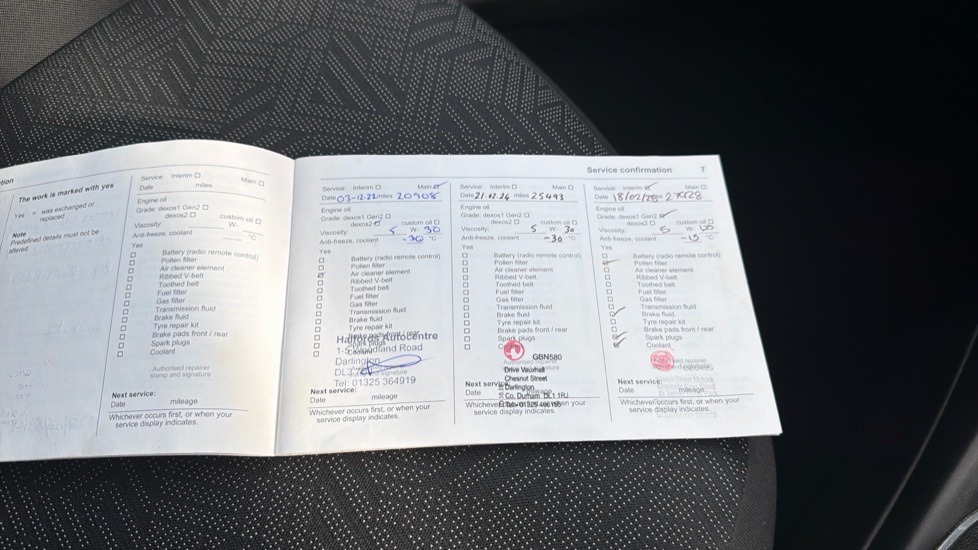 tion
The work is marked with yes
Yes = was exchanged or
replaced
Note
Predefined details must not be
altered
Service: Interim ☐ Main ☐
Date miles
Engine oil
Grade: dexos1 Gen2 ☐
dexos2 ☐ custom oil ☐
Viscosity: W-
Anti-freeze, coolant °C
Yes
☐ Battery (radio remote control)
☐ Pollen filter
☐ Air cleaner element
☐ Ribbed V-belt
☐ Toothed belt
☐ Fuel filter
☐ Gas filter
☐ Transmission fluid
☐ Brake fluid
☐ Tyre repair kit
☐ Brake pads front / rear
☐ Spark plugs
☐ Coolant
Authorised repairer
stamp and signature
Next service:
Date mileage
Whichever occurs first, or when your
service display indicates.
Service confirmation 7
Service: Interim ☐ Main ☑
Date 03-12-22 miles 20908
Engine oil
Grade: dexos1 Gen2 ☐
dexos2 ☑ custom oil ☐
Viscosity: 5 W- 30
Anti-freeze, coolant -30 °C
Yes
☐ Battery (radio remote control)
☐ Pollen filter
☑ Air cleaner element
☐ Ribbed V-belt
☐ Toothed belt
☐ Fuel filter
☐ Gas filter
☐ Transmission fluid
☐ Brake fluid
☐ Tyre repair kit
☐ Brake pads front / rear
☐ Spark plugs
☐ Coolant
Halfords Autocentre
Woodland Road
Darlington
DL3
Tel: 01325 364919
Next service:
Date mileage
Whichever occurs first, or when your
service display indicates.
Service: Interim ☐ Main ☐
Date 21.02.24 miles 25493
Engine oil
Grade: dexos1 Gen2 ☐
dexos2 ☐ custom oil ☐
Viscosity: 5 W- 30
Anti-freeze, coolant -30 °C
Yes
☐ Battery (radio remote control)
☐ Pollen filter
☐ Air cleaner element
☐ Ribbed V-belt
☐ Toothed belt
☐ Fuel filter
☐ Gas filter
☐ Transmission fluid
☐ Brake fluid
☐ Tyre repair kit
☐ Brake pads front / rear
☐ Spark plugs
GBN580
Drive Vauxhall
Chesnut Street
Darlington
Co. Durham DL1 1RJ
Next service:
Date
Whichever occurs first, or when your
service display indicates.
Service: Interim ☑ Main ☐
Date 18/02/
Engine oil
Grade: dexos1 Gen2 ☑
dexos2 ☐ custom oil ☐
Viscosity: 5 W-
Anti-freeze, coolant -15 °C
Yes
☐ Battery (radio remote control)
☑ Pollen filter
☐ Air cleaner element
☐ Ribbed V-belt
☐ Toothed belt
☐ Fuel filter
☐ Gas filter
☐ Transmission fluid
☑ Brake fluid
☐ Tyre repair kit
☐ Brake pads front / rear
☑ Spark plugs
☑ Coolant
Next service:
Date mileage
Whichever occurs first, or when your
service display indicates.